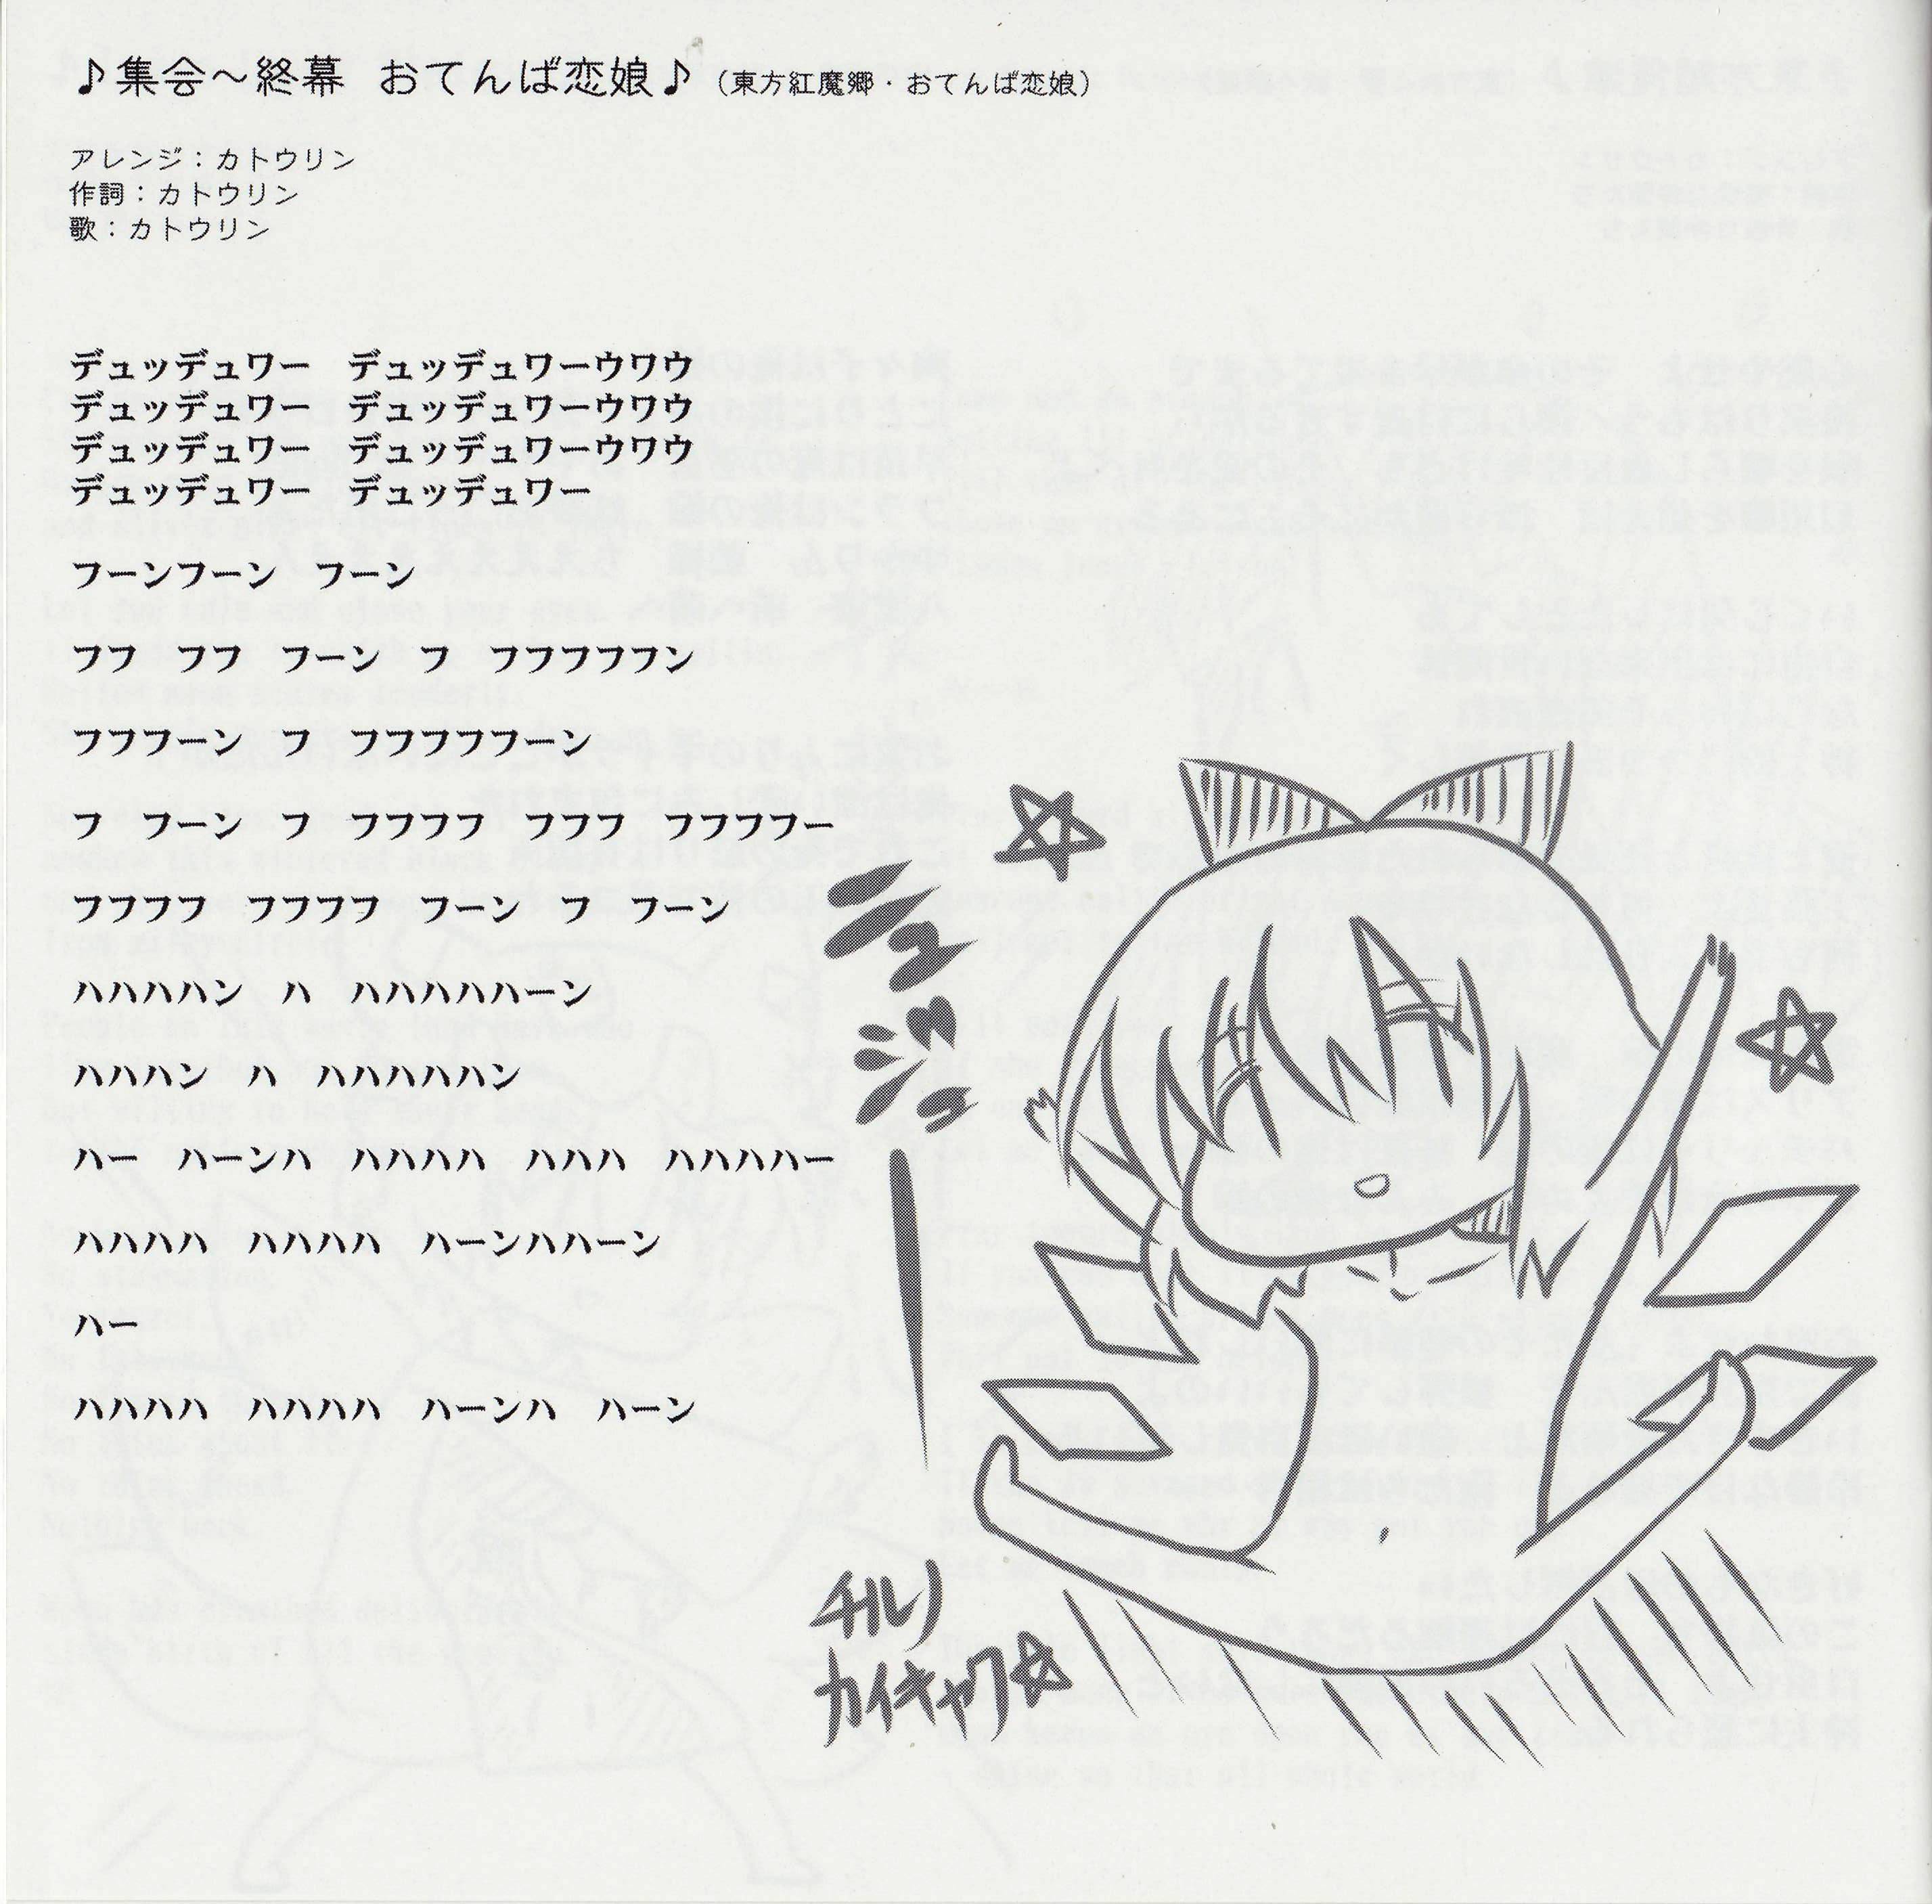 ♪集会～終幕　おてんば恋娘♪（東方紅魔郷・おてんば恋娘）
アレンジ：カトウリン
作詞：カトウリン
歌：カトウリン
デュッデュワー　デュッデュワーウワウ
デュッデュワー　デュッデュワーウワウ
デュッデュワー　デュッデュワーウワウ
デュッデュワー　デュッデュワー
フーンフーン　フーン
フフ　フフ　フーン　フ　フフフフフン
フフフーン　フ　フフフフフーン
フ　フーン　フ　フフフフ　フフフ　フフフフー
フフフフ　フフフフ　フーン　フ　フーン
ハハハハン　ハ　ハハハハハーン
ハハハン　ハ　ハハハハハン
ハー　ハーンハ　ハハハハ　ハハハ　ハハハハー
ハハハハ　ハハハハ　ハーンハハーン
ハー
ハハハハ　ハハハハ　ハーンハ　ハーン
ニュジュー
チルノ
カイキャク☆